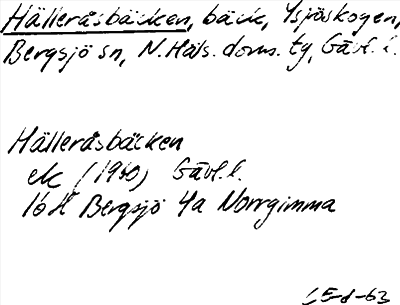 Hälleråsbäcken, bäck, Ysjöskogen,
Bergsjö sn, N. Häls. doms. tg, Gävl. l.
Hälleråsbäcken
ek (1960) Gävl. l.
16H Bergsjö 4a Norrgimma